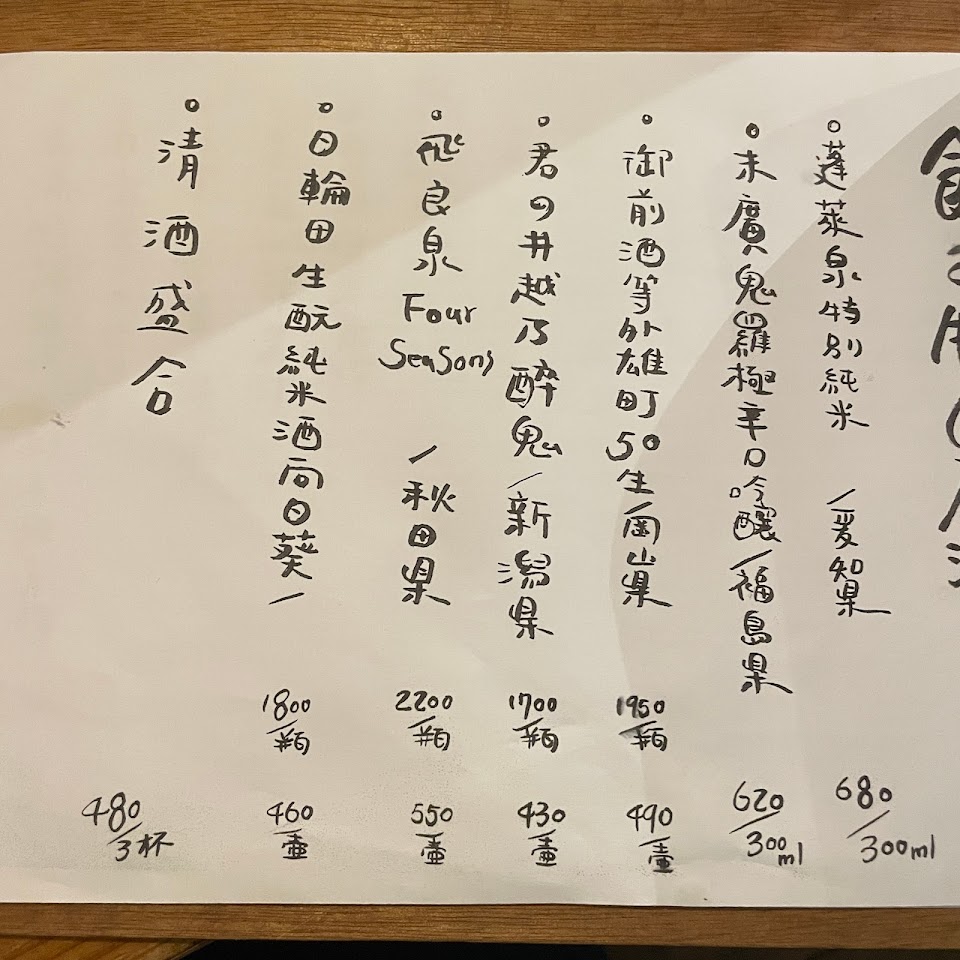 蓬萊泉特別純米 /愛知県 680/300ml
末廣鬼羅極辛口吟釀/福島県 620/300ml
御前酒等外雄町50生/岡山県 1950/瓶 490/壷
君の井越乃酔鬼/新潟県 1700/瓶 430/壷
飛良泉 Four Seasons /秋田県 2200/瓶 550/壷
日輪田生酛純米酒向日葵/ 1800/瓶 460/壷
清酒盛合 480/3杯